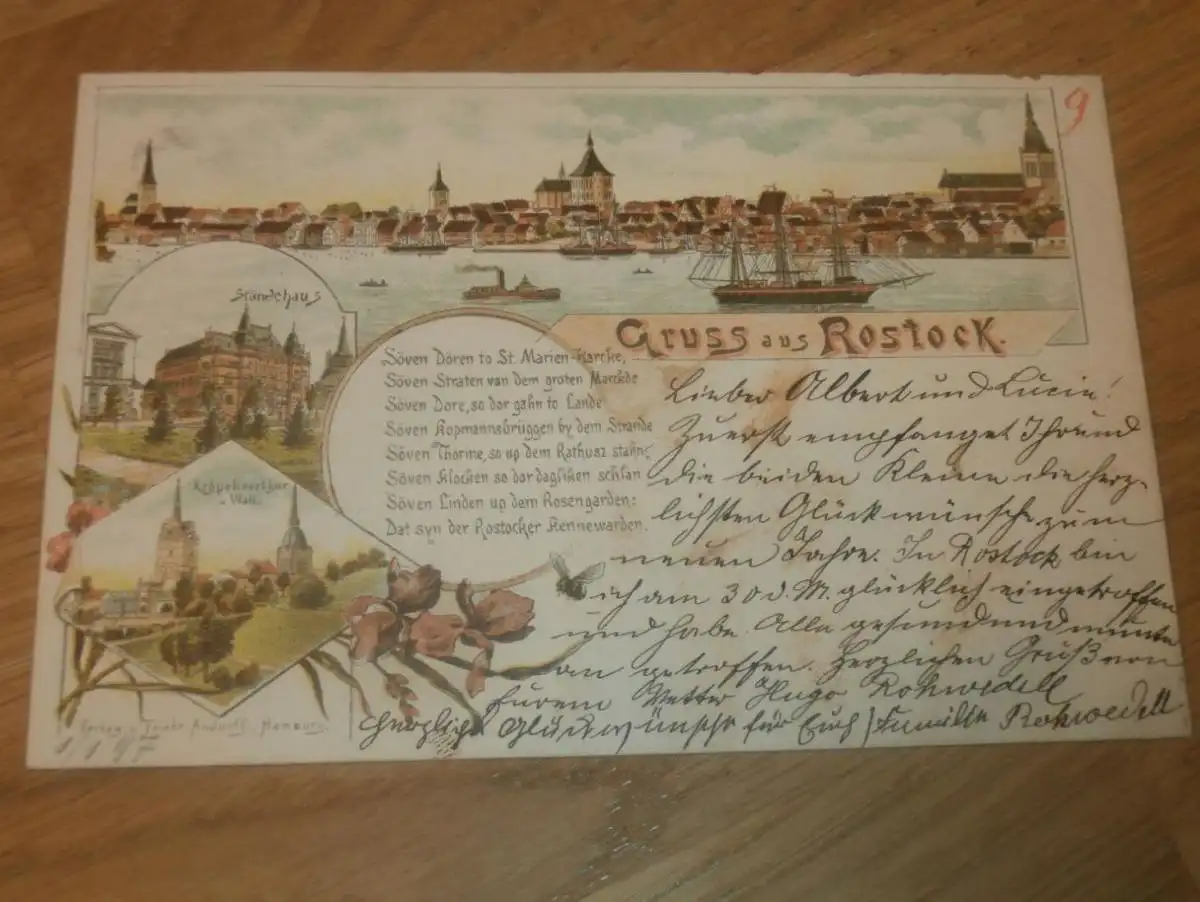 9
Ständehaus
Gruss aus Rostock.
Söven Dören to St. Marien-Karcke,
Söven Straten van dem groten Marckde
Söven Dore, so dar gahn to Lande
Söven Kopmannsbrüggen by dem Strande
Söven Thorme, so up dem Rathusz stahn,
Söven Klocken so dar dagliken schlan
Söven Linden up dem Rosengarden:
Dat syn der Rostocker Kennewarden.
Wall.
Lieber Albert und Lucie!
Zuerst empfanget Ihr und
die beiden Kleinen die herz-
lichsten Glückwünsche zum
neuen Jahre. In Rostock bin
ich am 30 d. M. glücklich eingetroffen
und habe Alle gesund und munter
an getroffen. Herzlichen Gruß von
Eurem Vetter Hugo Rohwedell
Herzliche Glückwünsche für Euch Familie Rohwedell
Hamburg.
1/1 97